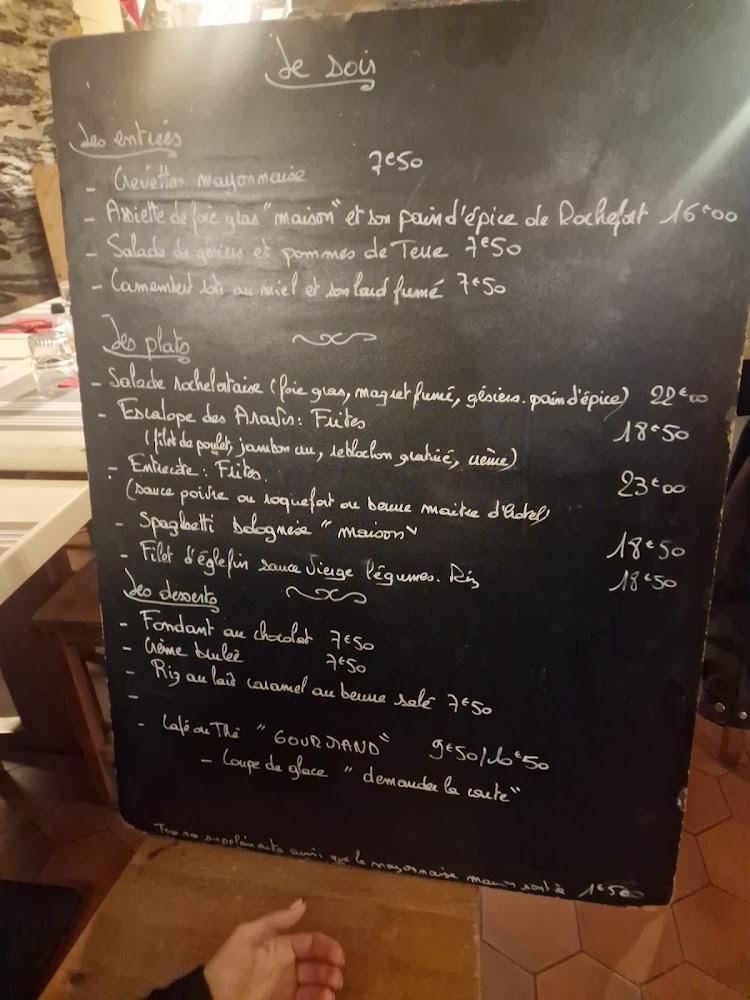 Le soir
Les entrées
- Crevettes mayonnaise 7€50
- Assiette de foie gras "maison" et son pain d'épice de Rochefort 16€00
- Salade de gésiers et pommes de Terre 7€50
- Camembert roti au miel et son lard fumé 7€50
Les plats
- Salade rochelataise (foie gras, magret fumé, gésiers. pain d'épice) 22€00
- Escalope des Aravis: Frites 18€50
(filet de poulet, jambon cru, reblochon gratiné, crème)
- Entrecote: Frites. 23€00
(sauce poivre ou roquefort ou beurre maitre d'hotel)
- Spaghetti bolognese "maison" 18€50
- Filet d'églefin sauce Vierge légumes. Riz 18€50
Les desserts
- Fondant au chocolat 7€50
- Crème brulée 7€50
- Riz au lait caramel au beurre salé 7€50
-
- Café ou Thé "GOURMAND" 9€50/10€50
- Coupe de glace "demander la carte"
Tous nos suppléments ainsi que la mayonnaise maison sont à 1€50